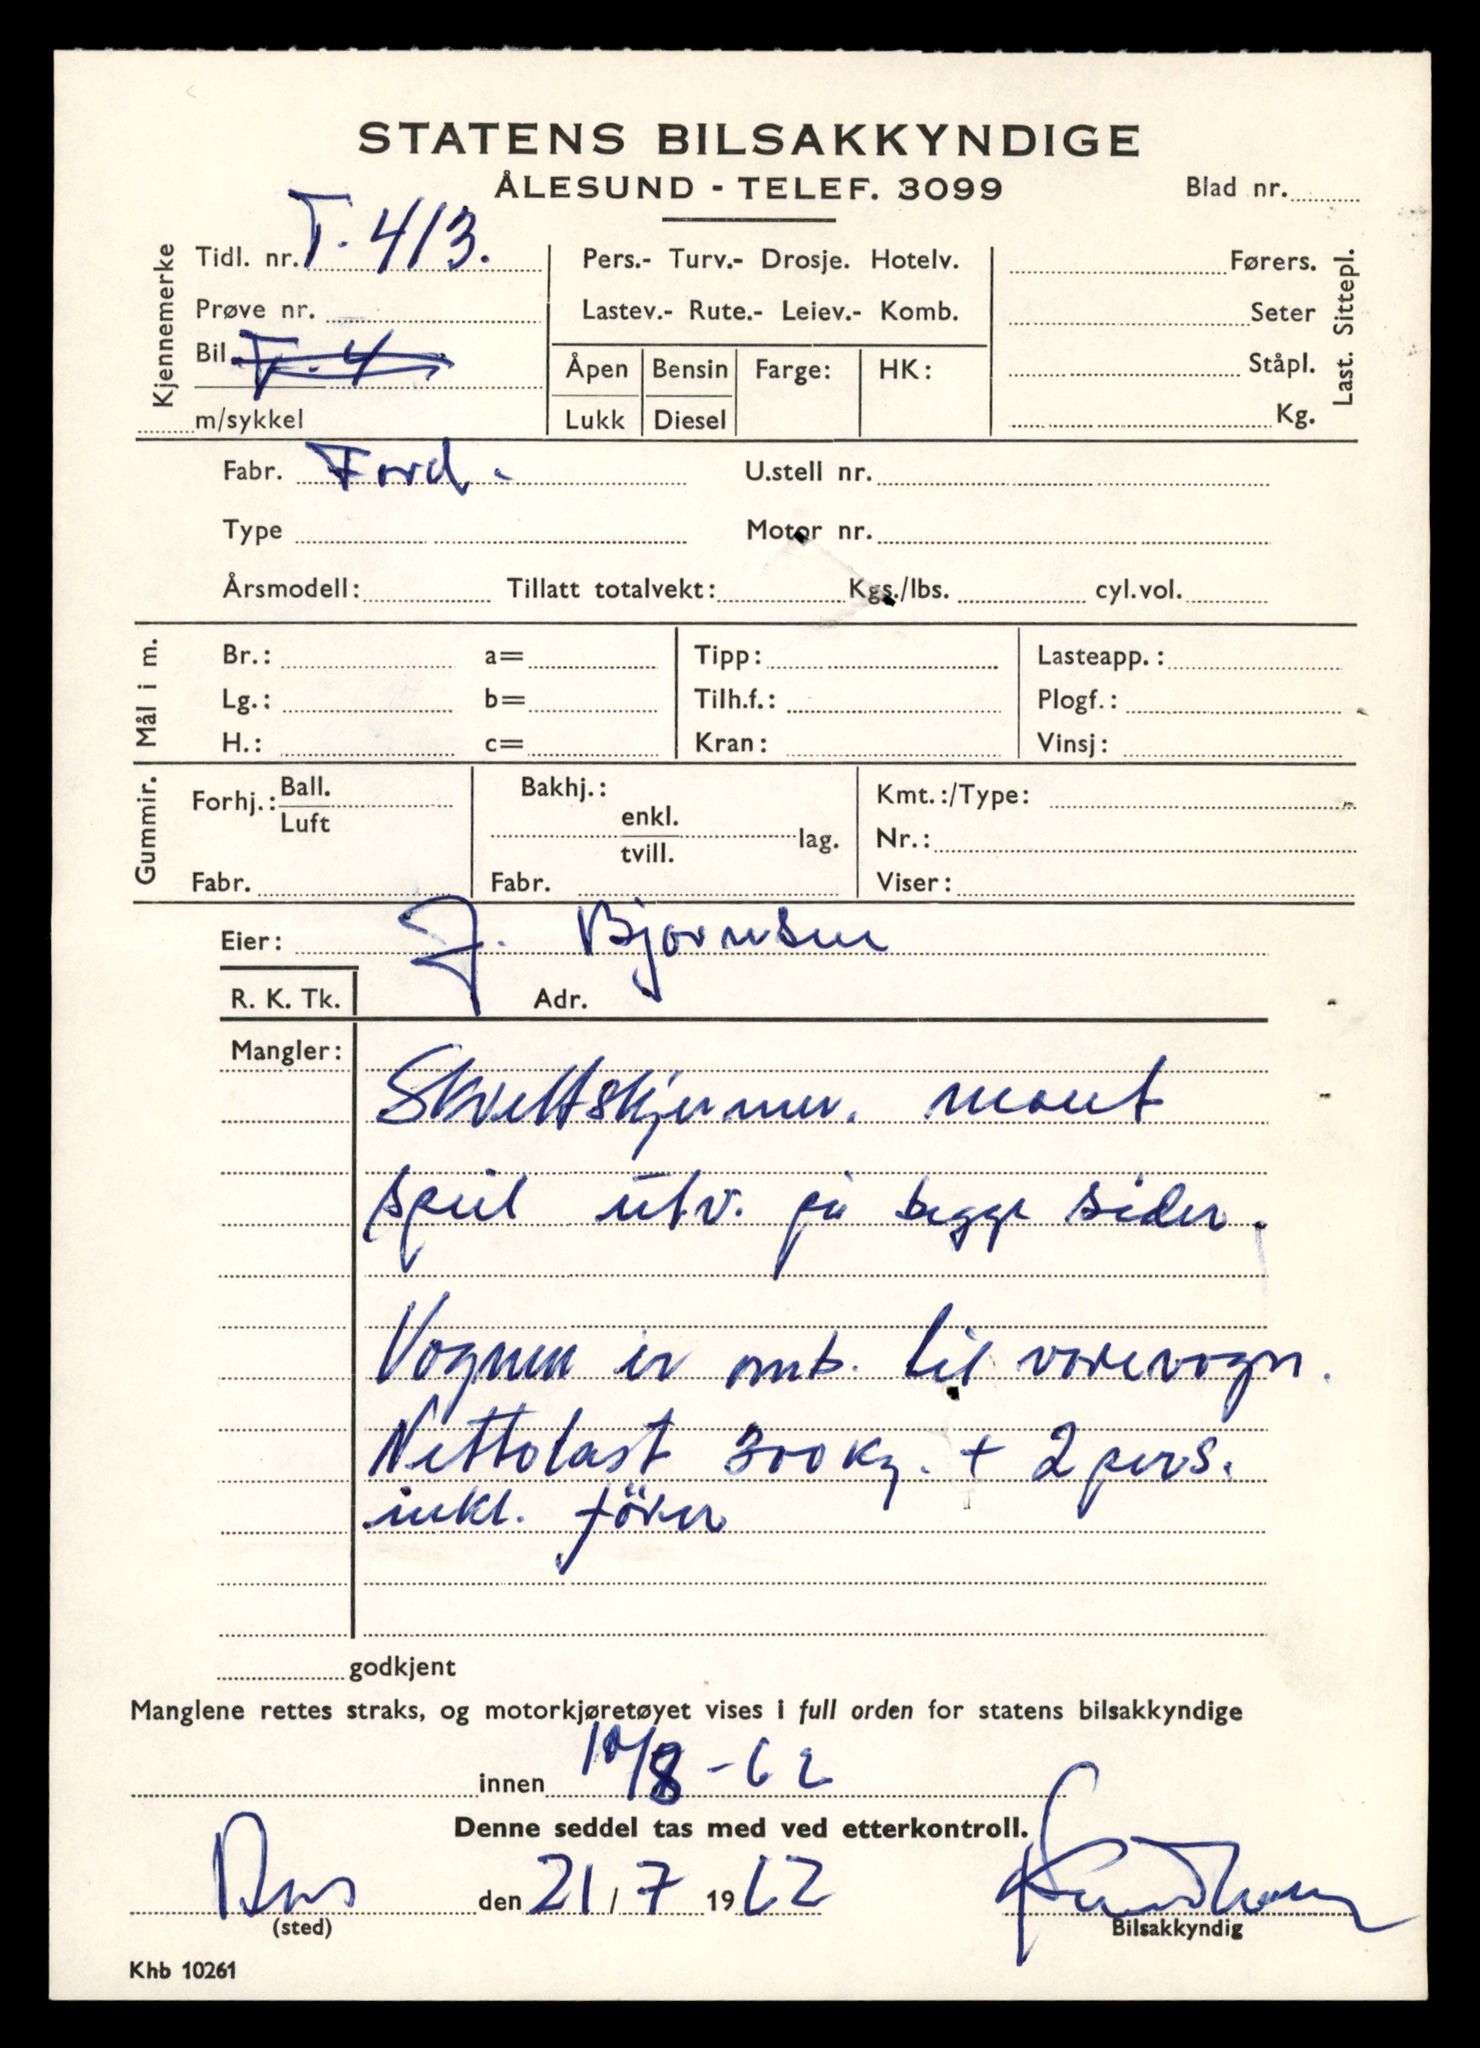 STATENS BILSAKKYNDIGE
ÅLESUND - TELEF. 3099
Blad nr.
Kjennemerke
Tidl. nr. T. 413.
Prøve nr.
Bil T. 4
m/sykkel
Pers.- Turv.- Drosje. Hotelv.
Lastev.- Rute.- Leiev.- Komb.
Åpen Bensin Farge: HK:
Lukk Diesel
Førers.
Seter
Ståpl.
Kg.
Last. Sittepl.
Fabr. Ford. U.stell nr.
Type Motor nr.
Årsmodell: Tillatt totalvekt: Kgs./lbs. cyl.vol.
Mål i m.
Br.: a= Tipp: Lasteapp.:
Lg.: b= Tilh.f.: Plogf.:
H.: c= Kran: Vinsj:
Gummir.
Forhj.: Ball. Luft
Fabr.
Bakhj.:
enkl. tvill. lag.
Fabr.
Kmt.:/Type:
Nr.:
Viser:
Eier: J. Bjørnsen
R. K. Tk. Adr.
Mangler:
Skvettskjermer. mont
speil utv. på begge sider.
Vognen er omb. til varevogn.
Nettolast 300 kg. + 2 pers.
inkl. förer
godkjent
Manglene rettes straks, og motorkjøretøyet vises i full orden for statens bilsakkyndige
innen 10/8-62
Denne seddel tas med ved etterkontroll.
den 21/7 1962
(sted) Bilsakkyndig
Khb 10261